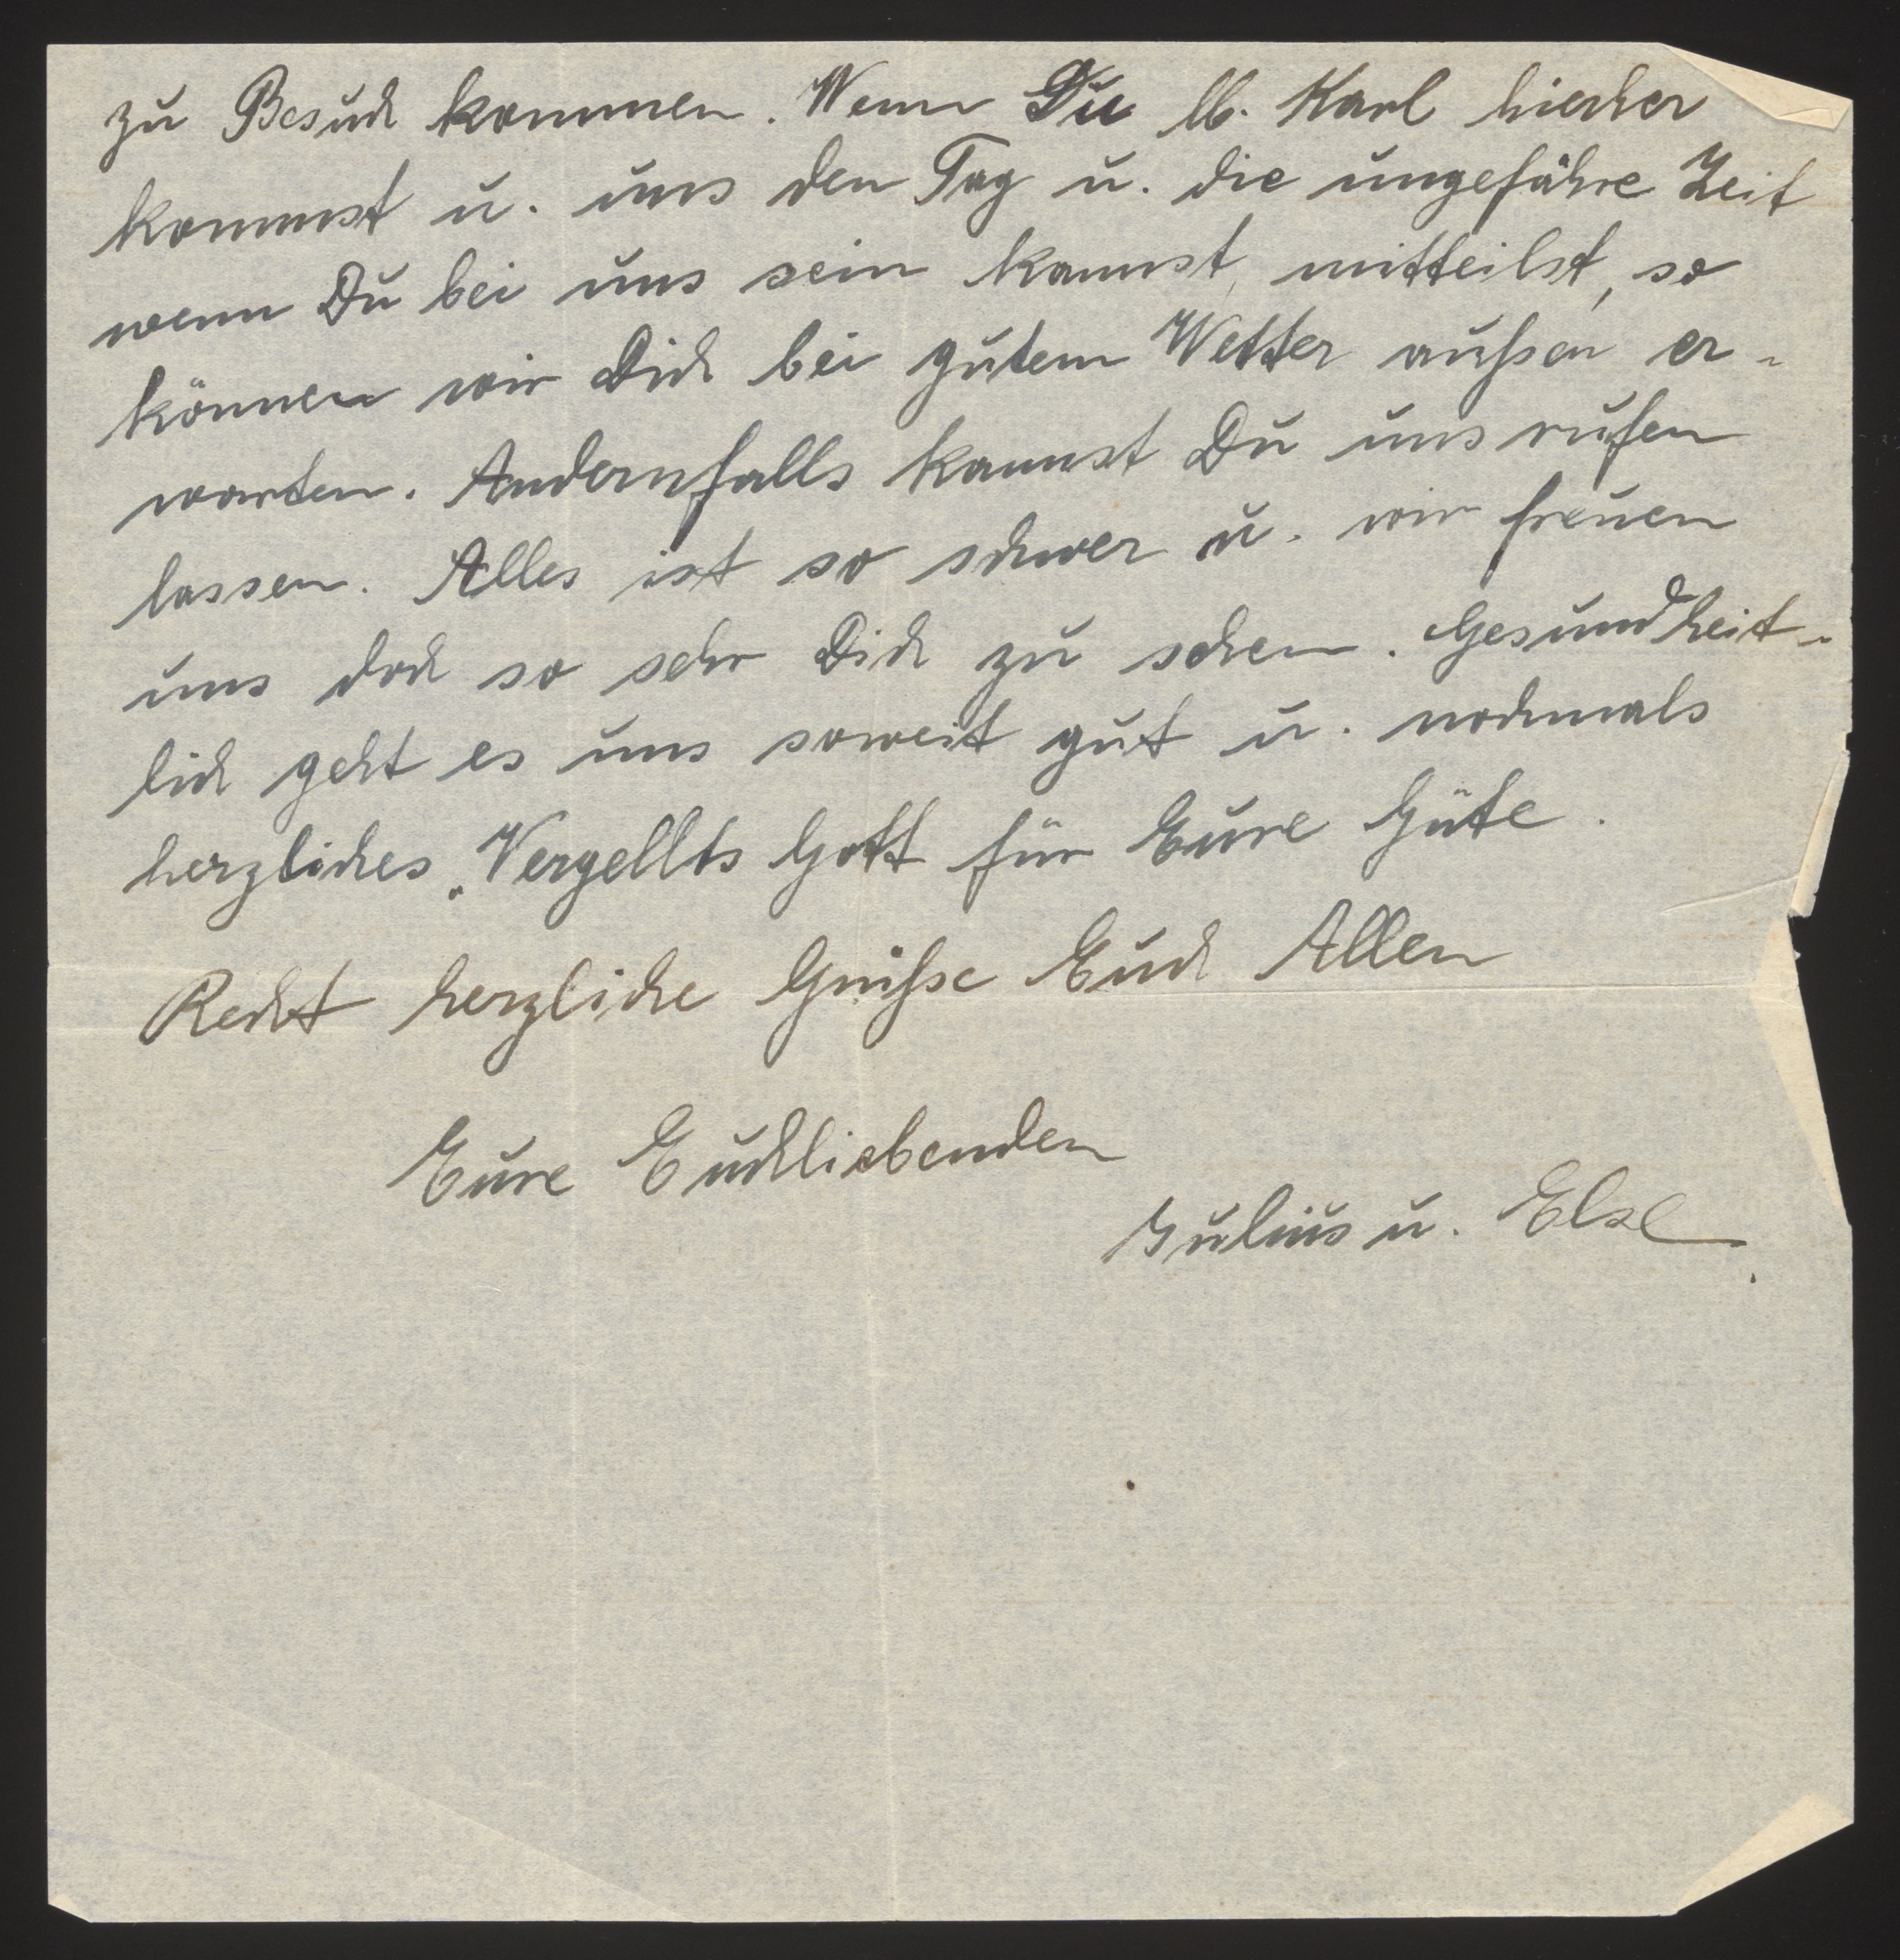 zu Besuch kommen. Wenn Du lb. Karl hierher
kommst u. uns den Tag u. die ungefähre Zeit
wenn Du bei uns sein kannst, mitteilst, so
können wir Dich bei gutem Wetter außen er-
warten. Andernfalls kannst Du uns rufen
lassen. Alles ist so schwer u. wir freuen
uns doch so sehr Dich zu sehen. Gesundheit-
lich geht es uns soweit gut u. nochmals
herzliches „Vergellts Gott für Eure Güte.
Recht herzliche Grüße Euch Allen
Eure Euchliebenden
Julius u. Else.